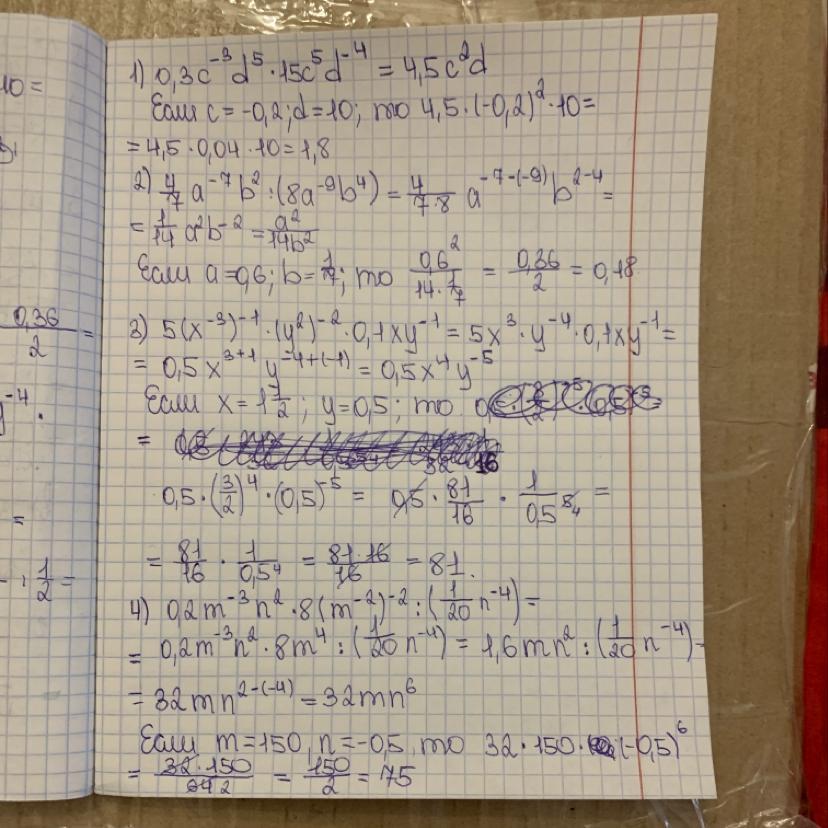 10 =
1) 0,3c⁻³d⁵ · 15c⁵d⁻⁴ = 4,5c²d
Если c = -0,2; d = 10; то 4,5 · (-0,2)² · 10 =
= 4,5 · 0,04 · 10 = 1,8
2) 4/7 a⁻⁷b² : (8a⁻⁹b⁴) = 4/(7·8) a⁻⁷⁻⁽⁻⁹⁾ b²⁻⁴ =
= 1/14 a²b⁻² = a²/(14b²)
Если a = 0,6; b = 1/7; то 0,6²/(14 · 1/7) = 0,36/2 = 0,18
0,36/2 =
3) 5(x⁻³)⁻¹ · (y²)⁻² · 0,1xy⁻¹ = 5x³ · y⁻⁴ · 0,1xy⁻¹ =
= 0,5x³⁺¹ y⁻⁴⁺⁽⁻¹⁾ = 0,5x⁴y⁻⁵
y⁻⁴ ·
Если x = 1 1/2; y = 0,5; то
=
0,5 · (3/2)⁴ · (0,5)⁻⁵ = 0,5 · 81/16 · 1/0,5⁵ ₄ =
=
= 81/16 · 1/0,5⁴ = 81·16/16 = 81.
: 1/2 =
4) 0,2m⁻³n² · 8(m⁻²)⁻² : (1/20 n⁻⁴) =
= 0,2m⁻³n² · 8m⁴ : (1/20 n⁻⁴) = 1,6mn² : (1/20 n⁻⁴) =
= 32mn²⁻⁽⁻⁴⁾ = 32mn⁶
Если m = 150, n = -0,5, то 32 · 150 · (-0,5)⁶
= 32·150/64 2 = 150/2 = 75